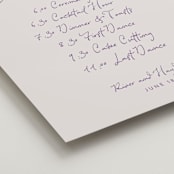 6.00 Ceremony
6.30 Cocktail Hour
7.30 Dinner & Toasts
8.30 First Dance
9.30 Cake Cutting
11.00 Last Dance
River and
JUNE